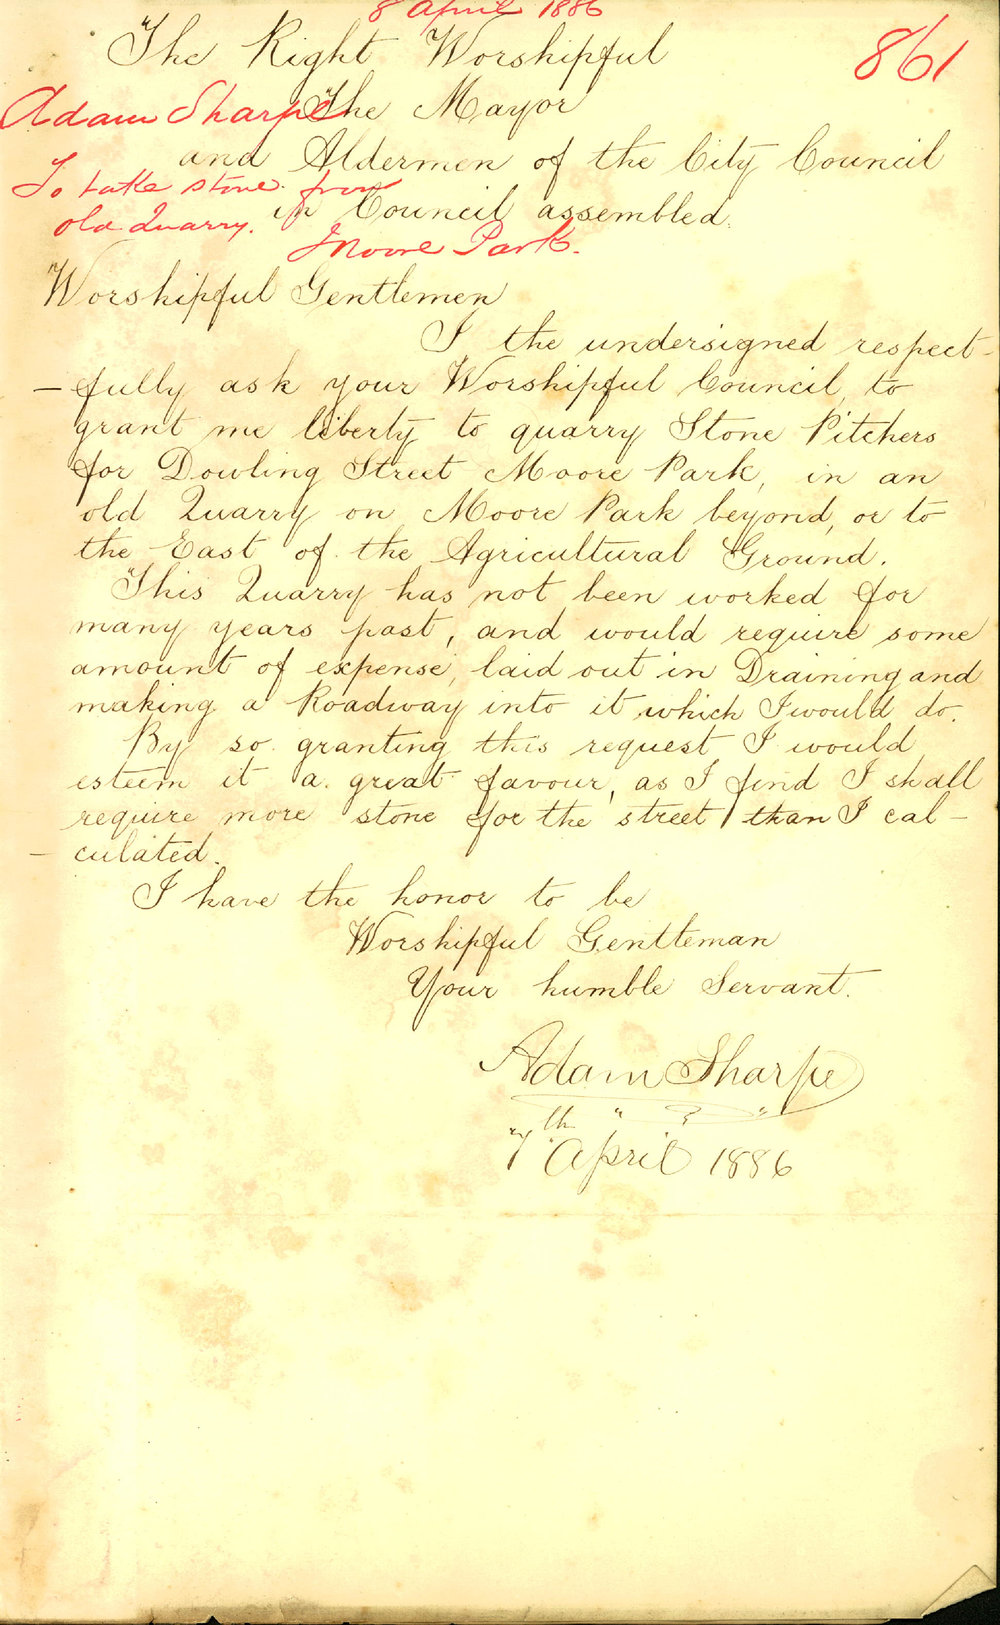 8 April 1886
The Right Worshipful
861
Adam Sharpe
The Mayor
and Aldermen of the City Council
To take stone from
in Council assembled.
old Quarry.
Moore Park.
Worshipful Gentlemen
I the undersigned respect-
-fully ask your Worshipful Council, to
grant me liberty to quarry Stone Pitchers
for Dowling Street Moore Park, in an
old Quarry on Moore Park beyond, or to
the East of the Agricultural Ground.
This Quarry has not been worked for
many years past, and would require some
amount of expense, laid out in Draining and
making a Roadway into it which I would do.
By so granting this request I would
esteem it a great favour, as I find I shall
require more stone for the street than I cal-
-culated.
I have the honor to be
Worshipful Gentleman
Your humble Servant.
Adam Sharpe
7th April 1886